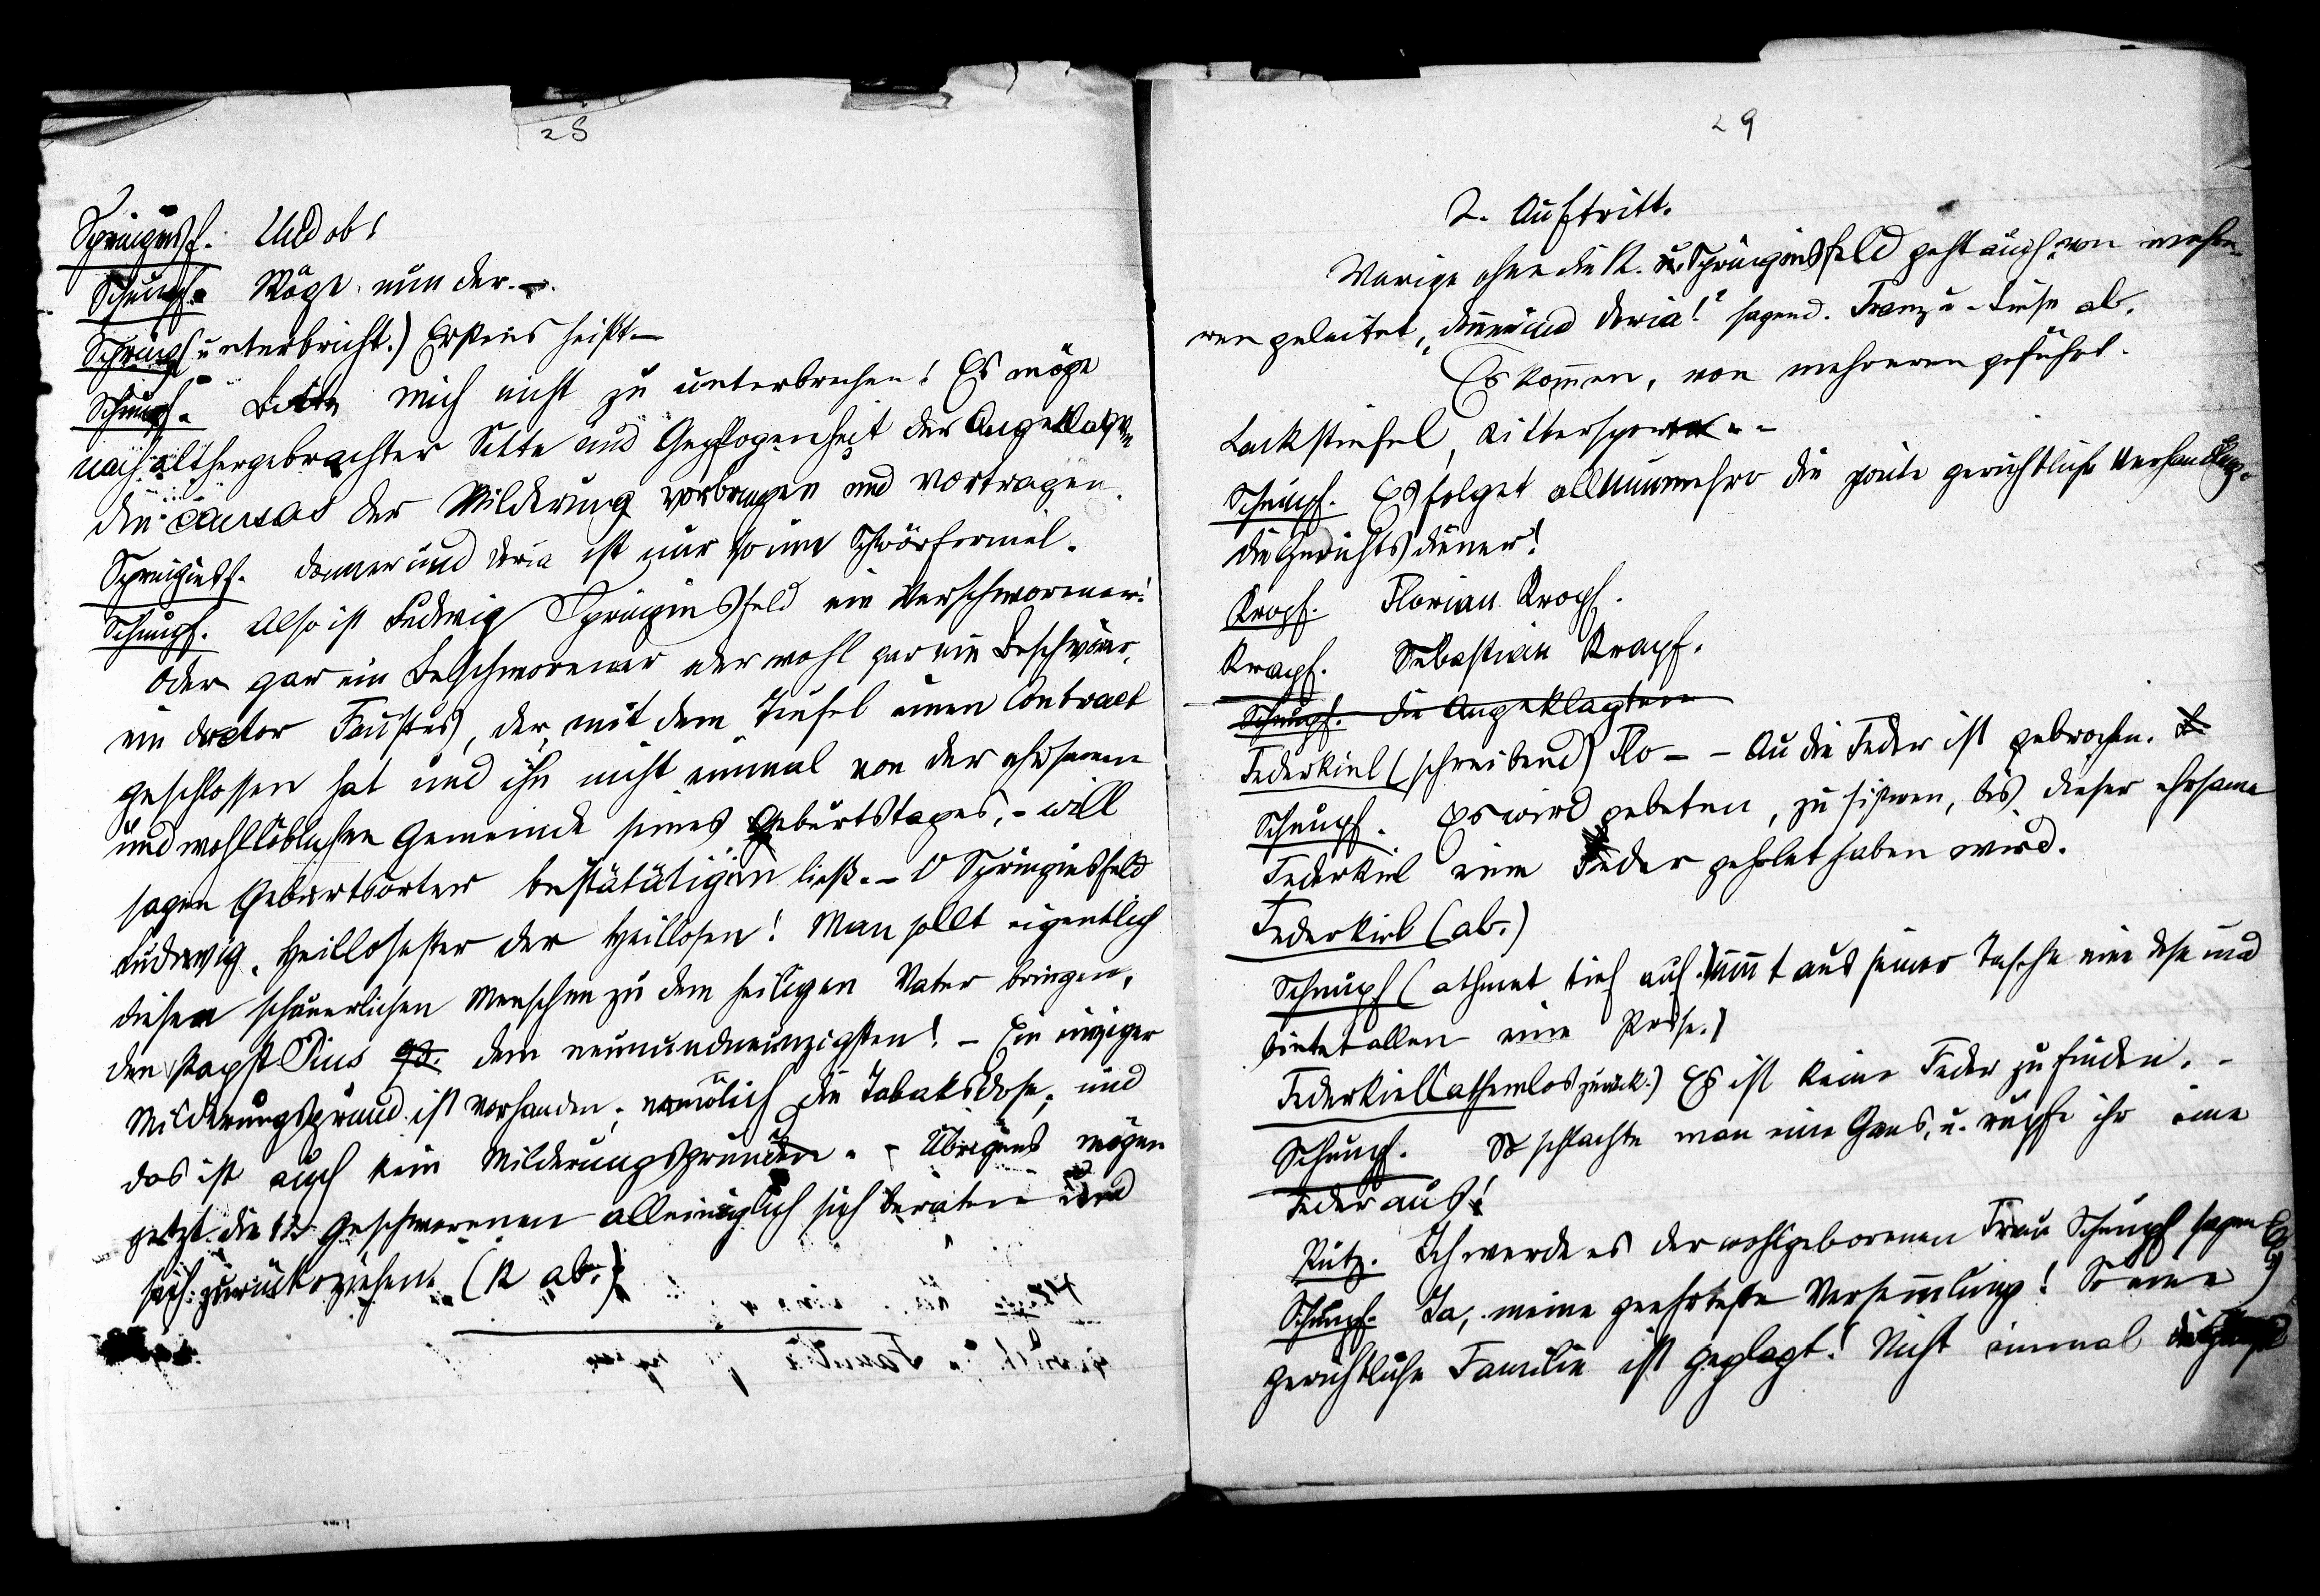 28
Springinsf. Und ob!
Schnupf. Möge nun der. –.
Springsf unterbricht.) Erstens heißt –
Schnupf. Bitte mich nicht zu unterbrechen! Es möge
nach althergebrachter Sitte und Gepflogenheit der Angeklagte
die causas der Milderung vorbringen und vortragen.
Springinsf. Donner und Doria ist nur so eine Schwörformel.
Schnupf. Also ist Ludwig Springinsfeld ein Verschworener!
Oder gar ein Beschworener oder wohl gar ein Beschwörer,
ein doctor Faustus, der mit dem Teufel einen Contract
geschlossen hat und ihn nicht einmal von der ehrsamen
und wohllöblichen Gemeinde seines Geburtstages, – will
sagen Geburtsortes bestätätigen ließ. – O Springinsfeld
Ludwig. Heillosester der Heillosen! Man sollt eigentlich
diesen schauerlichen Menschen zu dem heiligen Vater bringen,
den Papst Pius 99. dem neunundneunzigsten! – Ein einziger
Milderungsgrund ist vorhanden; nämlich die Tabaksdose; und
das ist auch kein Milderungsgrund. – Übrigens mögen
jetzt die 12 Geschworenen alleiniglich sich beraten und
sich zurückziehen. (R ab.)
29
2. Auftritt.
Vorige ohne die R. u. Springinsfeld geht auch, von mehre-
ren geleitet, „Donner und Doria!" sagend. Franz u. Liese ab.
Es kommen, von mehreren geführt.
Lackstiefel, Rittersporn - -
Schnupf. Es folget allnunmehro die zweite gerichtliche Verhandlung.
Die Gerichtsdiener!
Kropf. Florian Kropf.
Krapf. Sebastian Krapf.
Schnupf. Die Angeklagten
Federkiel (schreibend) Flo – – Au die Feder ist gebrochen.
Schnupf. Es wird gebeten, zu sistieren, bis dieser ehrsame
Federkiel eine Feder geholet haben wird.
Federkiel (ab.)
Schnupf (athmet tief auf. nimmt aus seiner Tasche eine Dose und
bietet allen eine Prise.)
Federkiel (athemlos zurück.) Es ist keine Feder zu finden. –
Schnupf. So schlachte man eine Gans, u. rupfe ihr eine
Feder aus!
Rütz. Ich werde es der wohlgeborenen Frau Schnupf sagen
Schnupf. Ja, meine geehrteste Versammlung! So eine
gerichtliche Familie ist geplagt! Nicht einmal